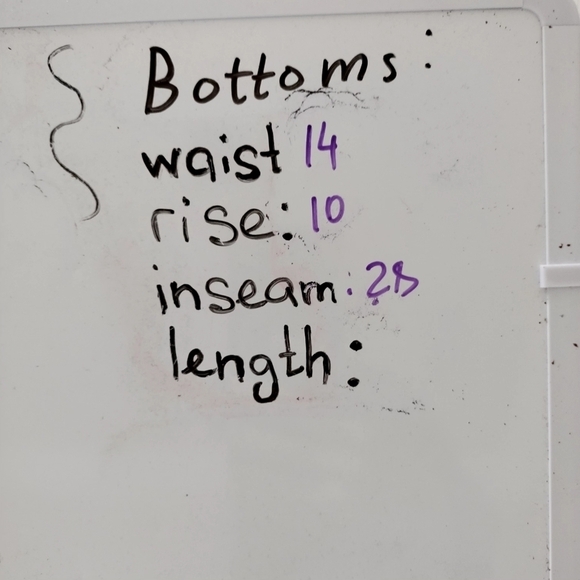 Bottoms:
waist 14
rise: 10
inseam: 28
length: